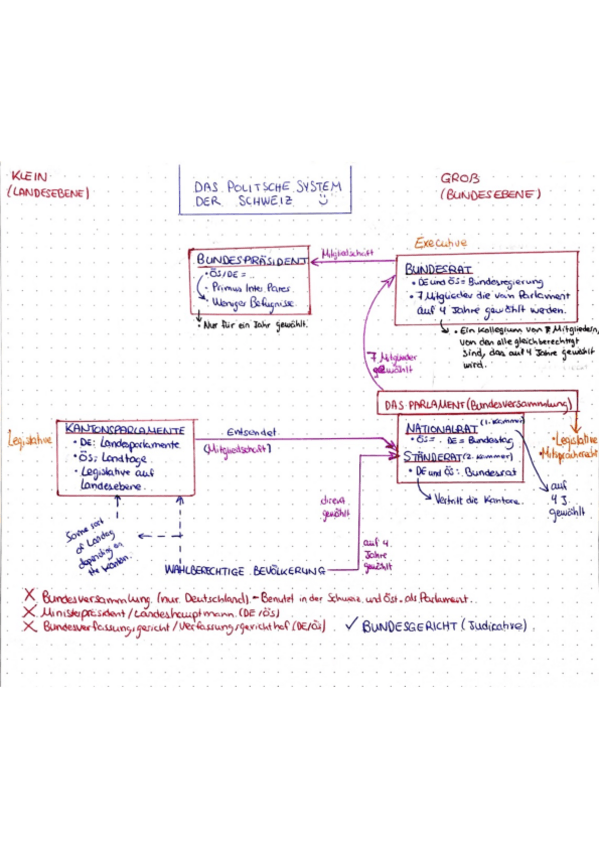 KLEIN
(LANDESEBENE)
DAS POLITSCHE SYSTEM
DER SCHWEIZ
GROß
(BUNDESEBENE)
BUNDESPRÄSIDENT
• ÖS/DE =
• Primus Into Pares
• Weniger Befugnisse.
Nur für ein Jahr gewählt.
Mitgliedschaft
Executive
BUNDESRAT
• DE und ÖS = Bundesregierung
• 7 Mitglieder die vom Parlament
auf 4 Jahre gewählt werden.
• Ein Kollegium von 7 Mitgliedern,
von den alle gleichberechtigt
sind, das auf 4 Jahre gewählt
wird.
7 Mitglieder
gewählt
DAS PARLAMENT (Bundesversammlung)
Legislative
KANTONSPARLAMENTE
• DE: Landesparlamente
• ÖS: Landtage
• Legislative auf
Landesebene.
Entsendet
(Mitgliedschaft)
NATIONALRAT (1. Kammer)
• ÖS = . DE = Bundestag
STÄNDERAT (2. Kammer)
• DE und ÖS: Bundesrat
Vertritt die Kantone.
• Legislative
• Mitspracherecht
auf
4 J.
gewählt
direkt
gewählt
auf 4
Jahre
gewählt
Some sort
of Landtag
depending on
the Kanton.
WAHLBERECHTIGE BEVÖLKERUNG
X Bundesversammlung (nur Deutschland) - Benutzt in der Schweiz und Öst. als Parlament.
X Ministepräsident / Landeshauptmann (DE/ÖS)
X Bundesverfassungsgericht / Verfassungsgerichthof (DE/ÖS) ✓ BUNDESGERICHT (Judikative).